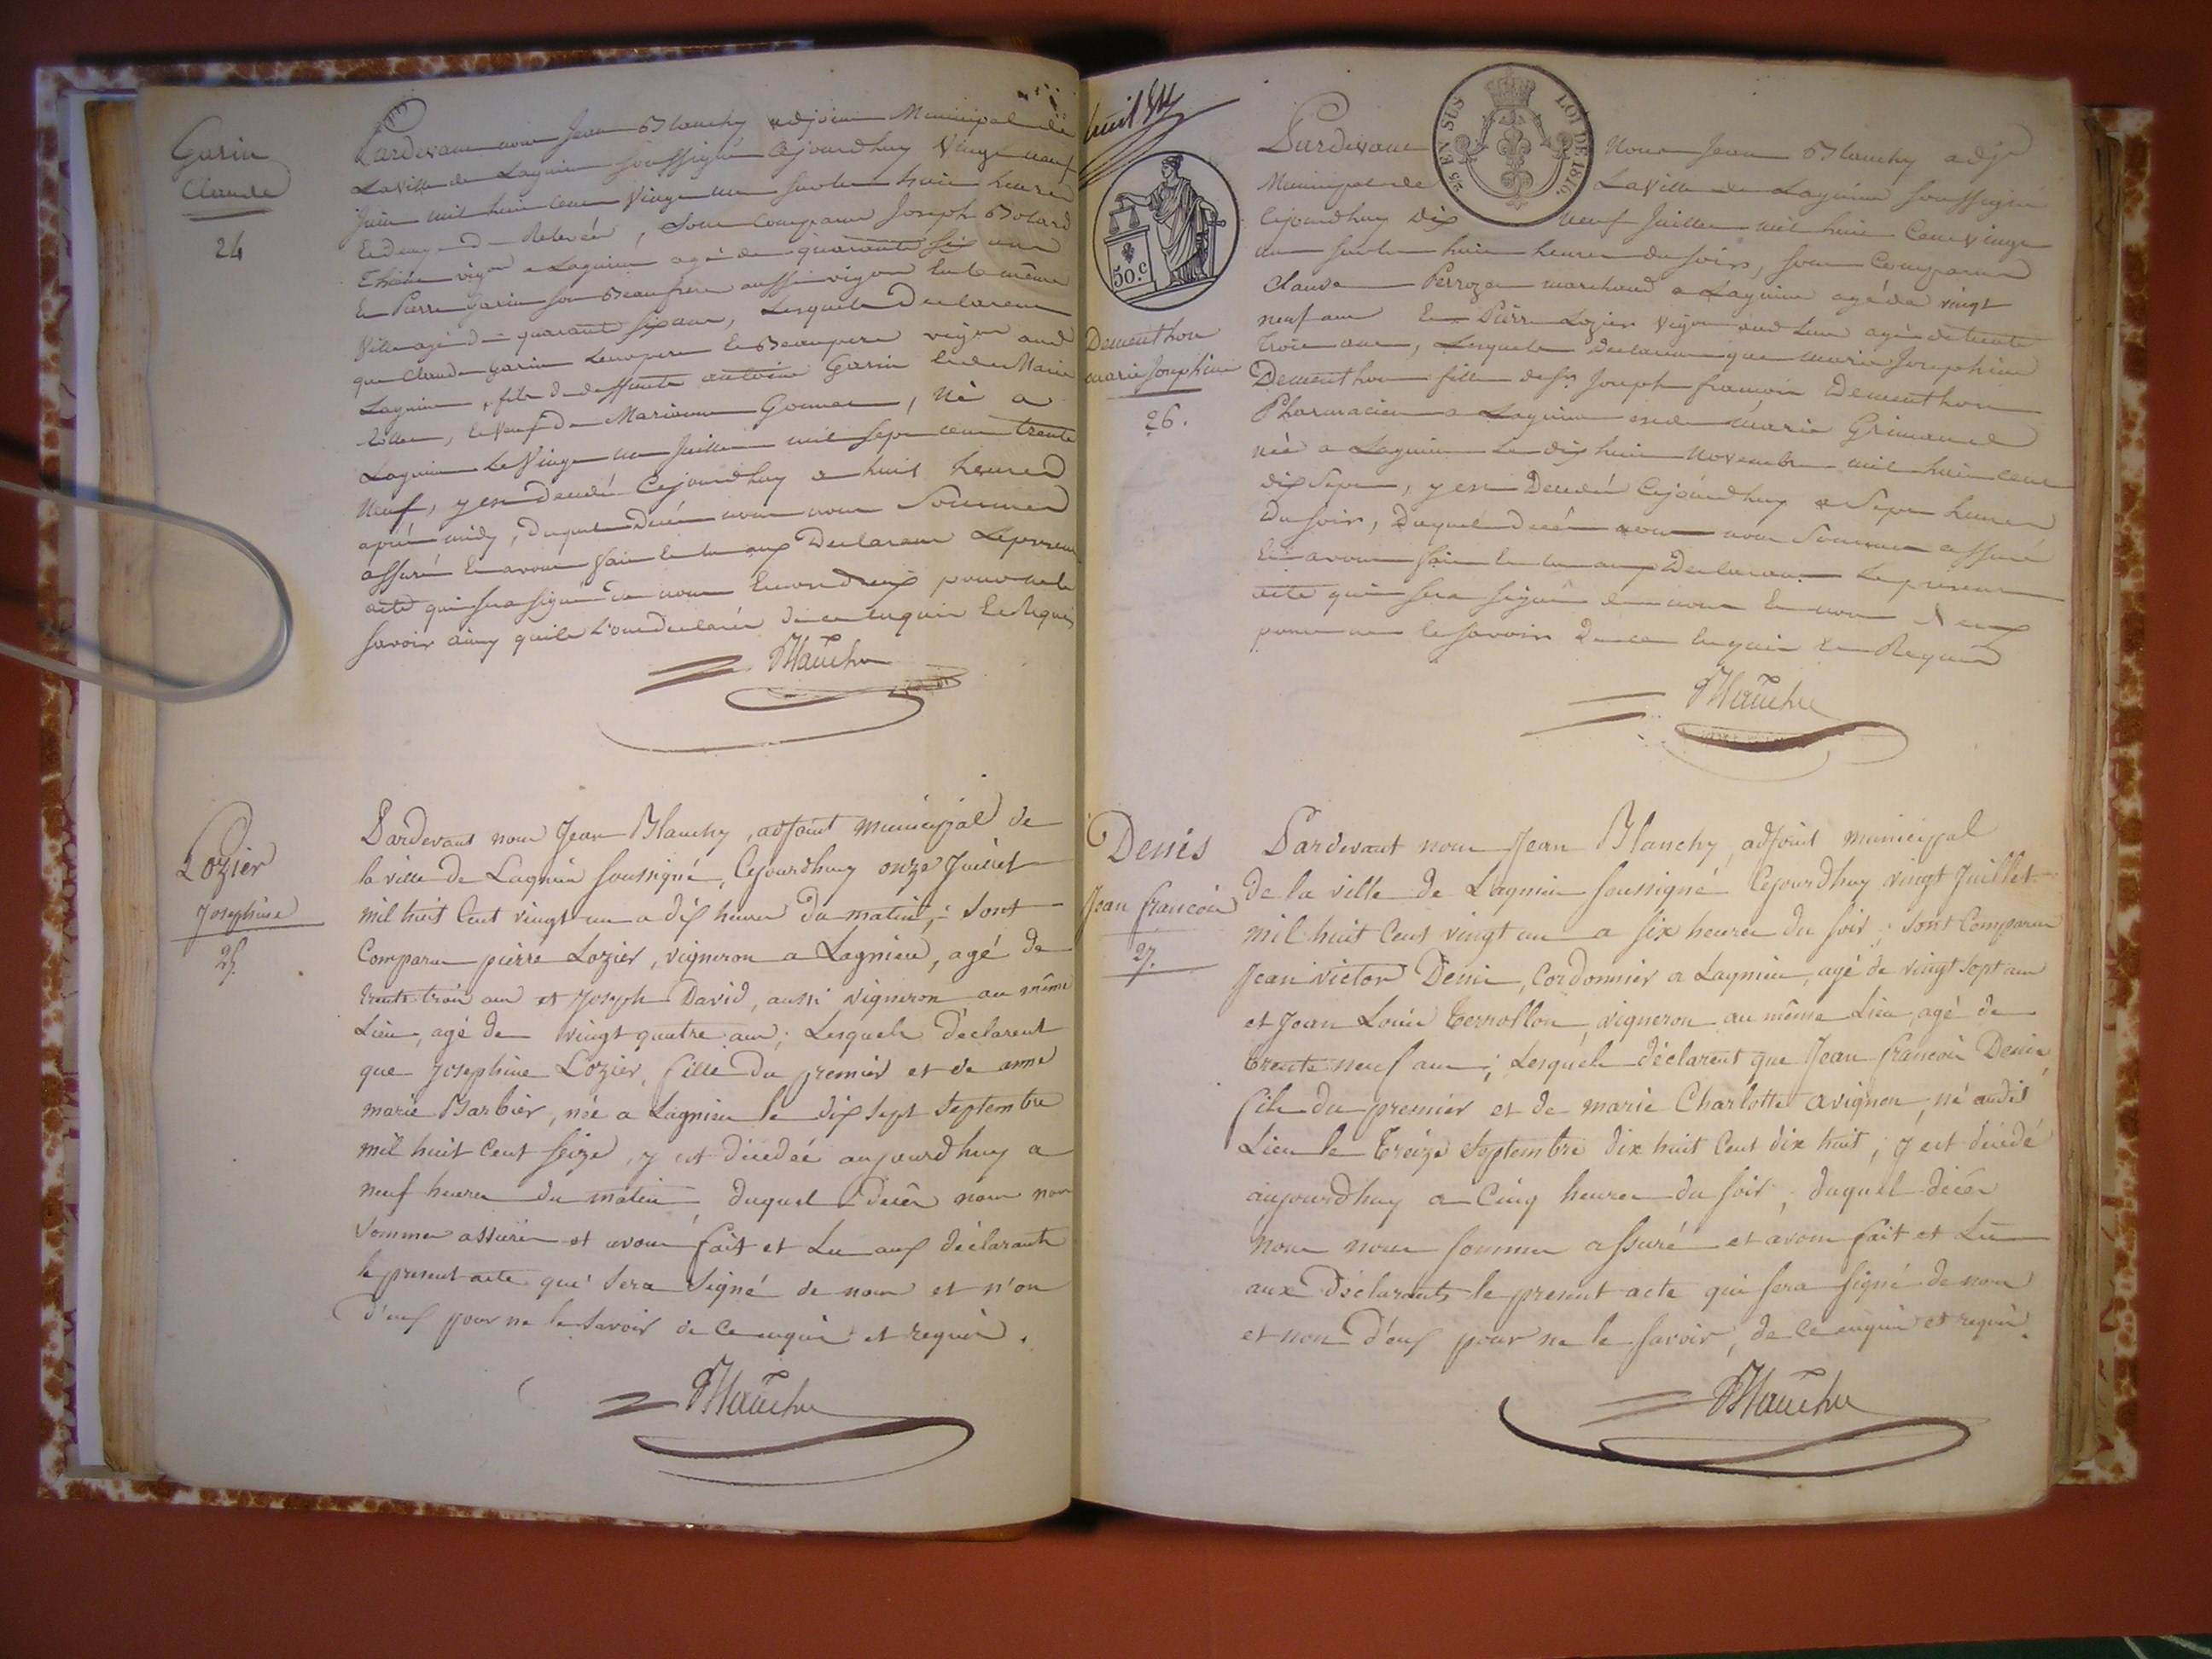 Garin
Claude
24
Pardevant nous Jean Blanchy adjoint Municipal de
La Ville de Lagnieu soussigné Cejourdhuy Vingt neuf
Juin mil huit cent Vingt un sur les huit heures
et demy de Relevée, sont comparus Joseph Bolard
vigon a Lagnieu agé de quarante six ans
Et Pierre Garin son Beaufrere aussi vigon en la même
Ville agé de quarante six ans, Lesquels Declarent
que Claude Garin Leur pere et Beaupere vigon aud
Lagnieu, fils de deffunts antoine Garin et de Marie
, et Veuf de Marianne , né a
Lagnieu Le Vingt un Juillet mil sept cent trente
Neuf, y est Décédé Cejourdhuy a huit heures
après midy, Duquel Décès nous nous Sommes
assuré Et avons fait et lu aux Declarants Le present
acte qui sera signé de nous Et non d'eux pour ne le
savoir ainsy qu'ils L'ont declarés de ce enquis Et Requis
Blanchy
Lozier
Josephine
25.
Pardevant nous Jean Blanchy, adjoint municipal de
la ville de Lagnieu soussigné, Cejourdhuy onze Juillet
mil huit Cent vingt un a dix heures du matin; sont
Comparus pierre Lozier, vigneron a Lagnieu, agé de
trente trois ans et Joseph David, aussi vigneron au même
Lieu, agé de vingt quatre ans; Lesquels déclarent
que Josephine Lozier, fille du premier et de anne
marie Barbier, née a Lagnieu le dix sept Septembre
mil huit Cent seize, y est décedée aujourdhuy a
neuf heures du matin, duquel décès nous nous
sommes assurés et avons fait et Lu aux déclarants
le present acte qui sera signé de nous et n'on
d'eux pour ne le savoir de ce enquis et requis.
Blanchy
huit
5/5 EN SUS
LOI DE 1816.
50.c
Dementhon
marie Josephine
26.
Pardevant Nous Jean Blanchy adjt
Municipal de La Ville de Lagnieu soussigné
Cejourdhuy Dix neuf Juillet mil huit Cent vingt
un sur les huit heures du soir, sont Comparus
Claude Perrozet marchand a Lagnieu agé de vingt
neuf ans Et Pierre Lozier Vigon aud Lieu agé de trente
trois ans, Lesquels Declarent que marie Josephine
Dementhon fille de sr. Joseph françois Dementhon
Pharmacien a Lagnieu et de Marie Grimand
née a Lagnieu Le dix huit Novembre mil huit cent
dix Sept, y est Décédée Cejourdhuy a Sept heures
Du soir, Duquel décés nous nous Sommes assuré
Et avons fait et lu aux Declarants Le present
acte qui sera signé de nous Et non d'eux
pour ne le savoir De ce enquis et Requis
Blanchy
Denis
Jean françois
27.
Pardevant nous Jean Blanchy, adjoint municipal
de la ville de Lagnieu soussigné Cejourdhuy vingt Juillet
mil huit Cent vingt un a six heures du soir; sont Comparus
Jean victor Denis, Cordonnier a Lagnieu, agé de vingt sept ans
et Jean Louis Terrollon, vigneron au même Lieu, agé de
trente neuf ans; Lesquels déclarent que Jean françois Denis,
fils du premier et de marie Charlotte avignon, né audit
Lieu le treize Septembre dix huit Cent dix huit; y est décédé
aujourdhuy a Cinq heures du soir; duquel décès
Nous nous sommes assuré et avons fait et Lu
aux Déclarants le present acte qui sera signé de nous
et non d'eux pour ne le savoir, de ce enquis et requis.
Blanchy